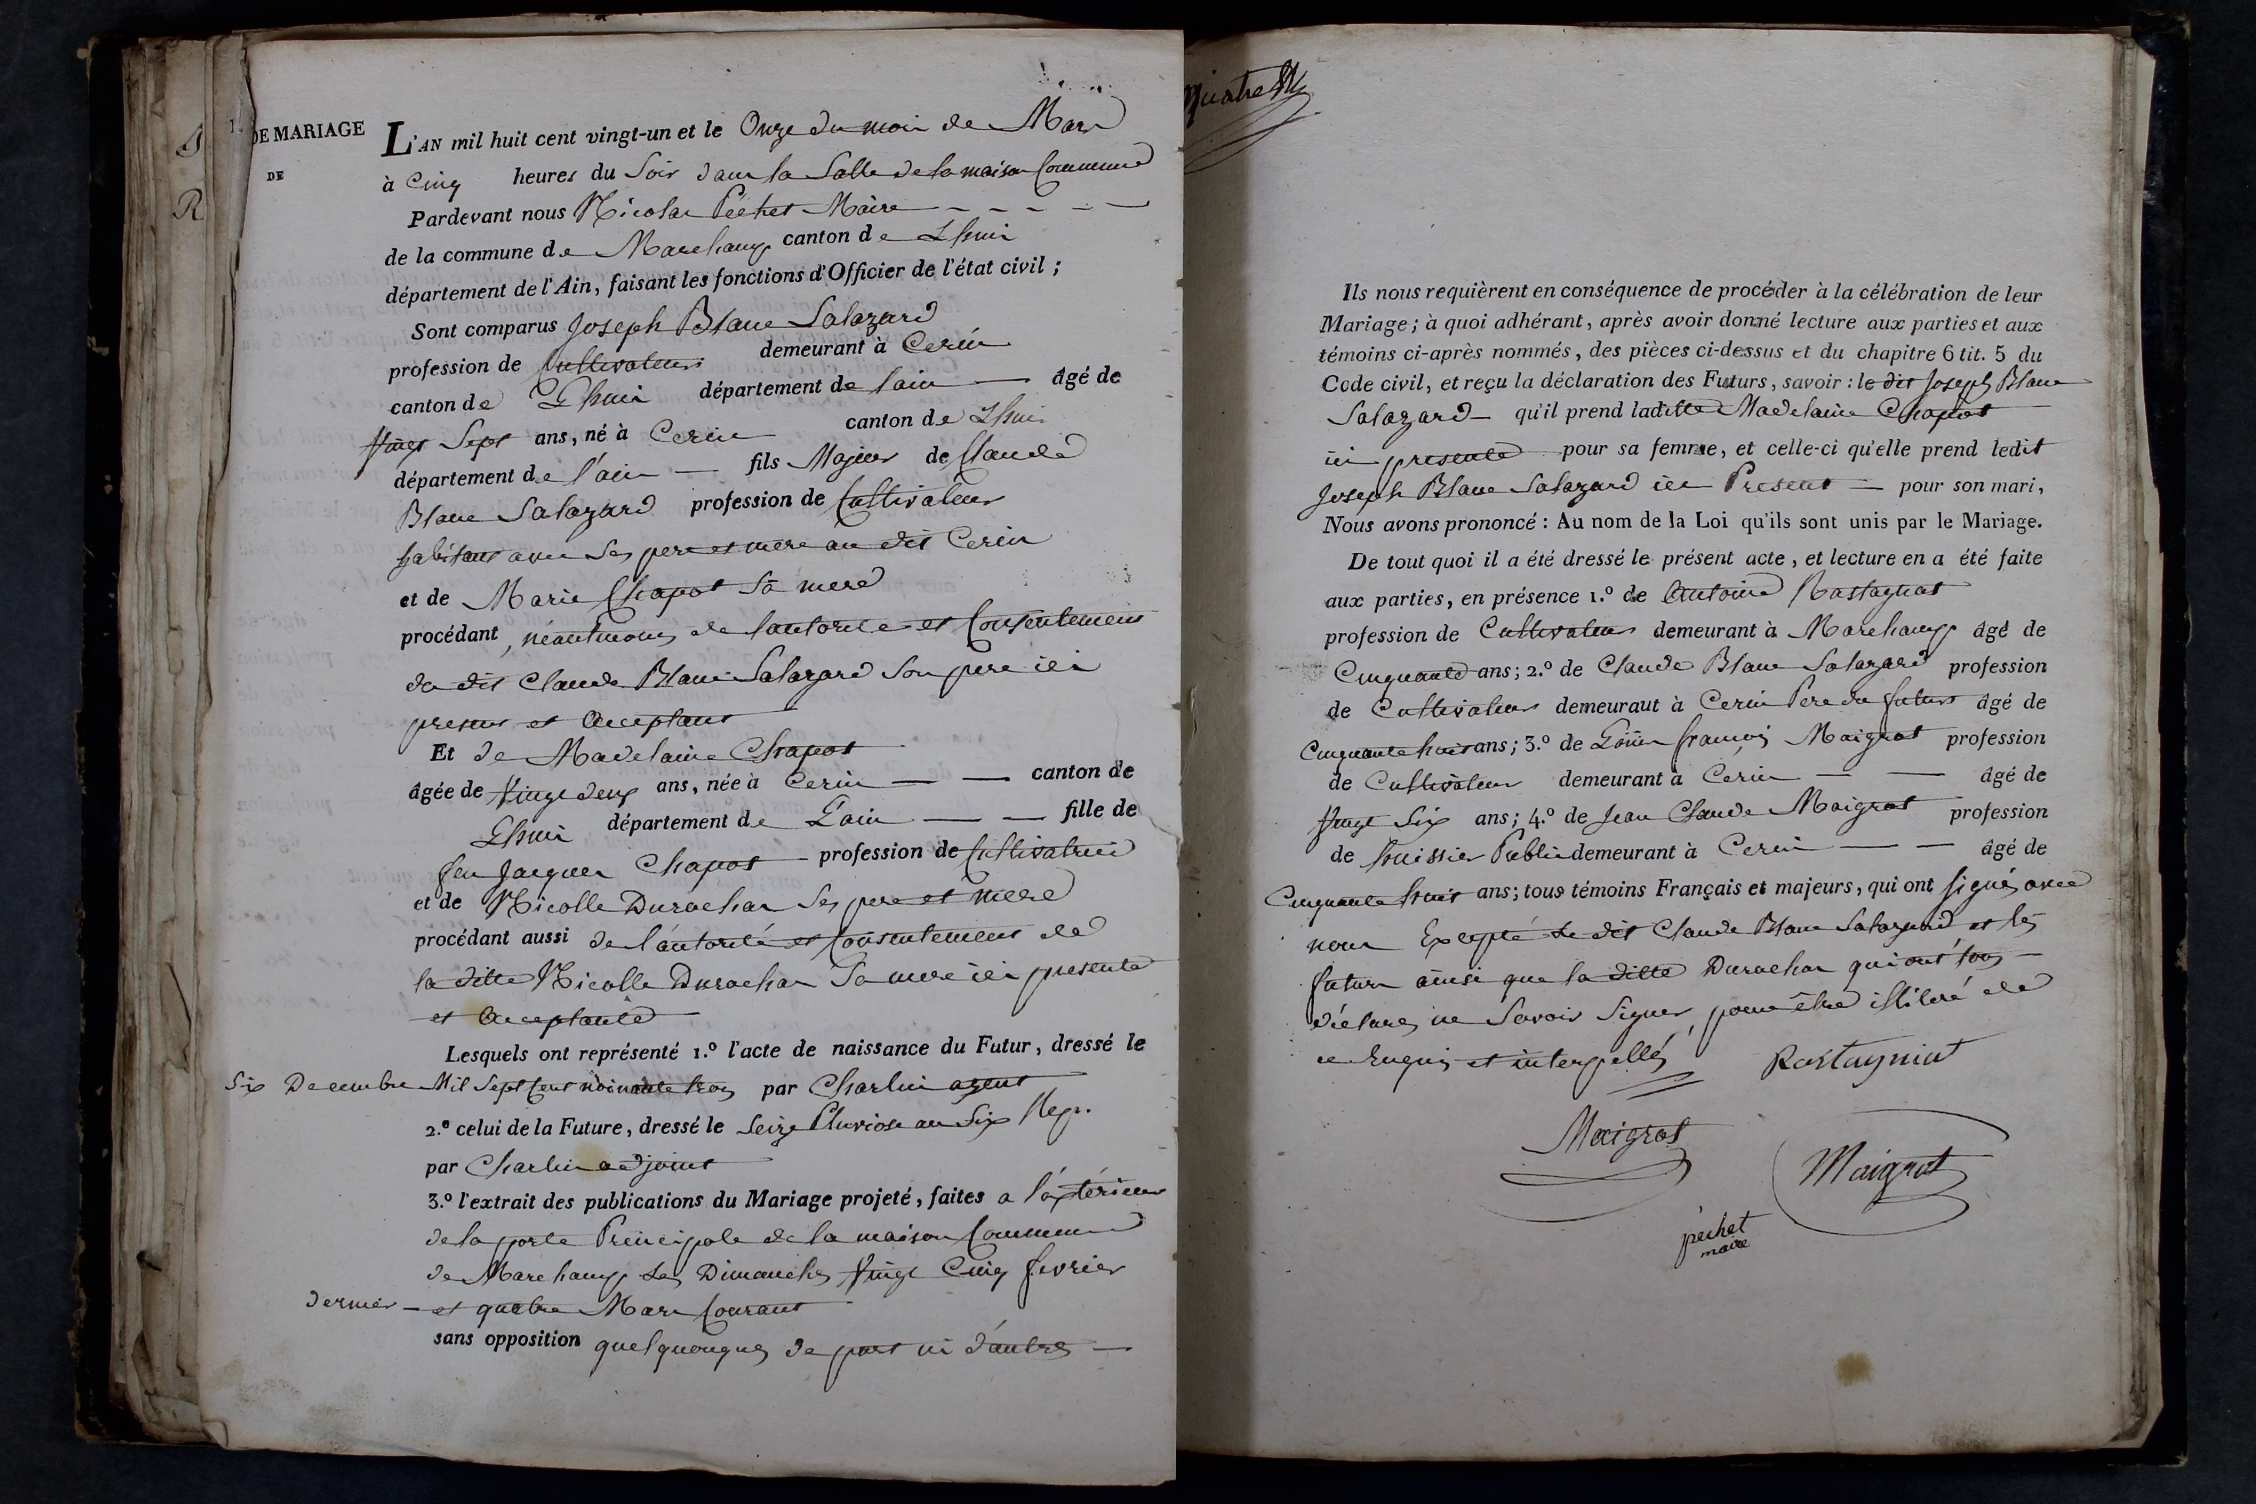 DE MARIAGE
DE
L'AN mil huit cent vingt-un et le Onze du mois de Mars
à Cinq heures du Soir dans la Salle de la maison Commune
Pardevant nous Nicolas Pechet Maire
de la commune de Marchamp canton de Lhuis
département de l'Ain, faisant les fonctions d'Officier de l'état civil ;
Sont comparus Joseph Blanc Salazard
profession de Cultivateur demeurant à Cerin
canton de Lhuis département de lain âgé de
Vingt Sept ans, né à Cerin canton de Lhuis
département de l'ain fils Majeur de Claude
Blanc Salazard profession de Cultivateur
habitant avec Ses pere et mere au dit Cerin
et de Marie Chapot Sa mere
procédant, néantmoins de lautorité et Consentement
du dit Claude Blanc Salazard Son pere ici
present et acceptant
Et de Madelaine Chapot
âgée de Vingt deux ans, née à Cerin canton de
Lhuis département de Lain fille de
feu Jacques Chapot profession de Cultivatrice
et de Nicolle Durochar Ses pere et mere
procédant aussi de l'autorité et Consentement de
la ditte Nicolle Durochar Sa mere ici presente
et acceptante
Lesquels ont représenté 1.º l'acte de naissance du Futur, dressé le
Six Decembre Mil Sept Cent noinante trois par Charlin agent
2.º celui de la Future, dressé le Seize Pluviose an Six Rep.
par Charlin adjoint
3.º l'extrait des publications du Mariage projeté, faites a l'extérieur
de la porte Principale de la maison Commune
de Marchamp Les Dimanches Vingt Cinq fevrier
dernier et quatre Mars Courant
sans opposition quelquonques de part ni d'autres
Ils nous requièrent en conséquence de procéder à la célébration de leur
Mariage; à quoi adhérant, après avoir donné lecture aux parties et aux
témoins ci-après nommés, des pièces ci-dessus et du chapitre 6 tit. 5 du
Code civil, et reçu la déclaration des Futurs, savoir : le dit Joseph Blanc
Salazard qu'il prend laditte Madelaine Chapot
ici presente pour sa femme, et celle-ci qu'elle prend ledit
Joseph Blanc Salazard ici Present pour son mari,
Nous avons prononcé : Au nom de la Loi qu'ils sont unis par le Mariage.
De tout quoi il a été dressé le présent acte, et lecture en a été faite
aux parties, en présence 1.º de Antoine Rastagnat
profession de Cultivateur demeurant à Marchamp âgé de
Cinquante ans; 2.º de Claude Blanc Salazard profession
de Cultivateur demeuraut à Cerin Pere du futur âgé de
Cinquante huit ans; 3.º de Louis françois Maigrot profession
de Cultivateur demeurant à Cerin âgé de
Vingt Six ans; 4.º de Jean Claude Maigrot profession
de huissier Public demeurant à Cerin âgé de
Cinquante huit ans; tous témoins Français et majeurs, qui ont Signés avec
nous Excepté Le dit Claude Blanc Salazard et les
futurs ainsi que la ditte Durochar qui ont tous
déclarés ne Savoir Signer pour être illiteré de
ce Enquis et interpellés
Rastagniat
Maigrot
Maigrot
péchet
maire